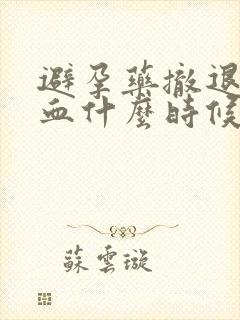 避孕藥撤退
血什麼時候
蘇雲璇